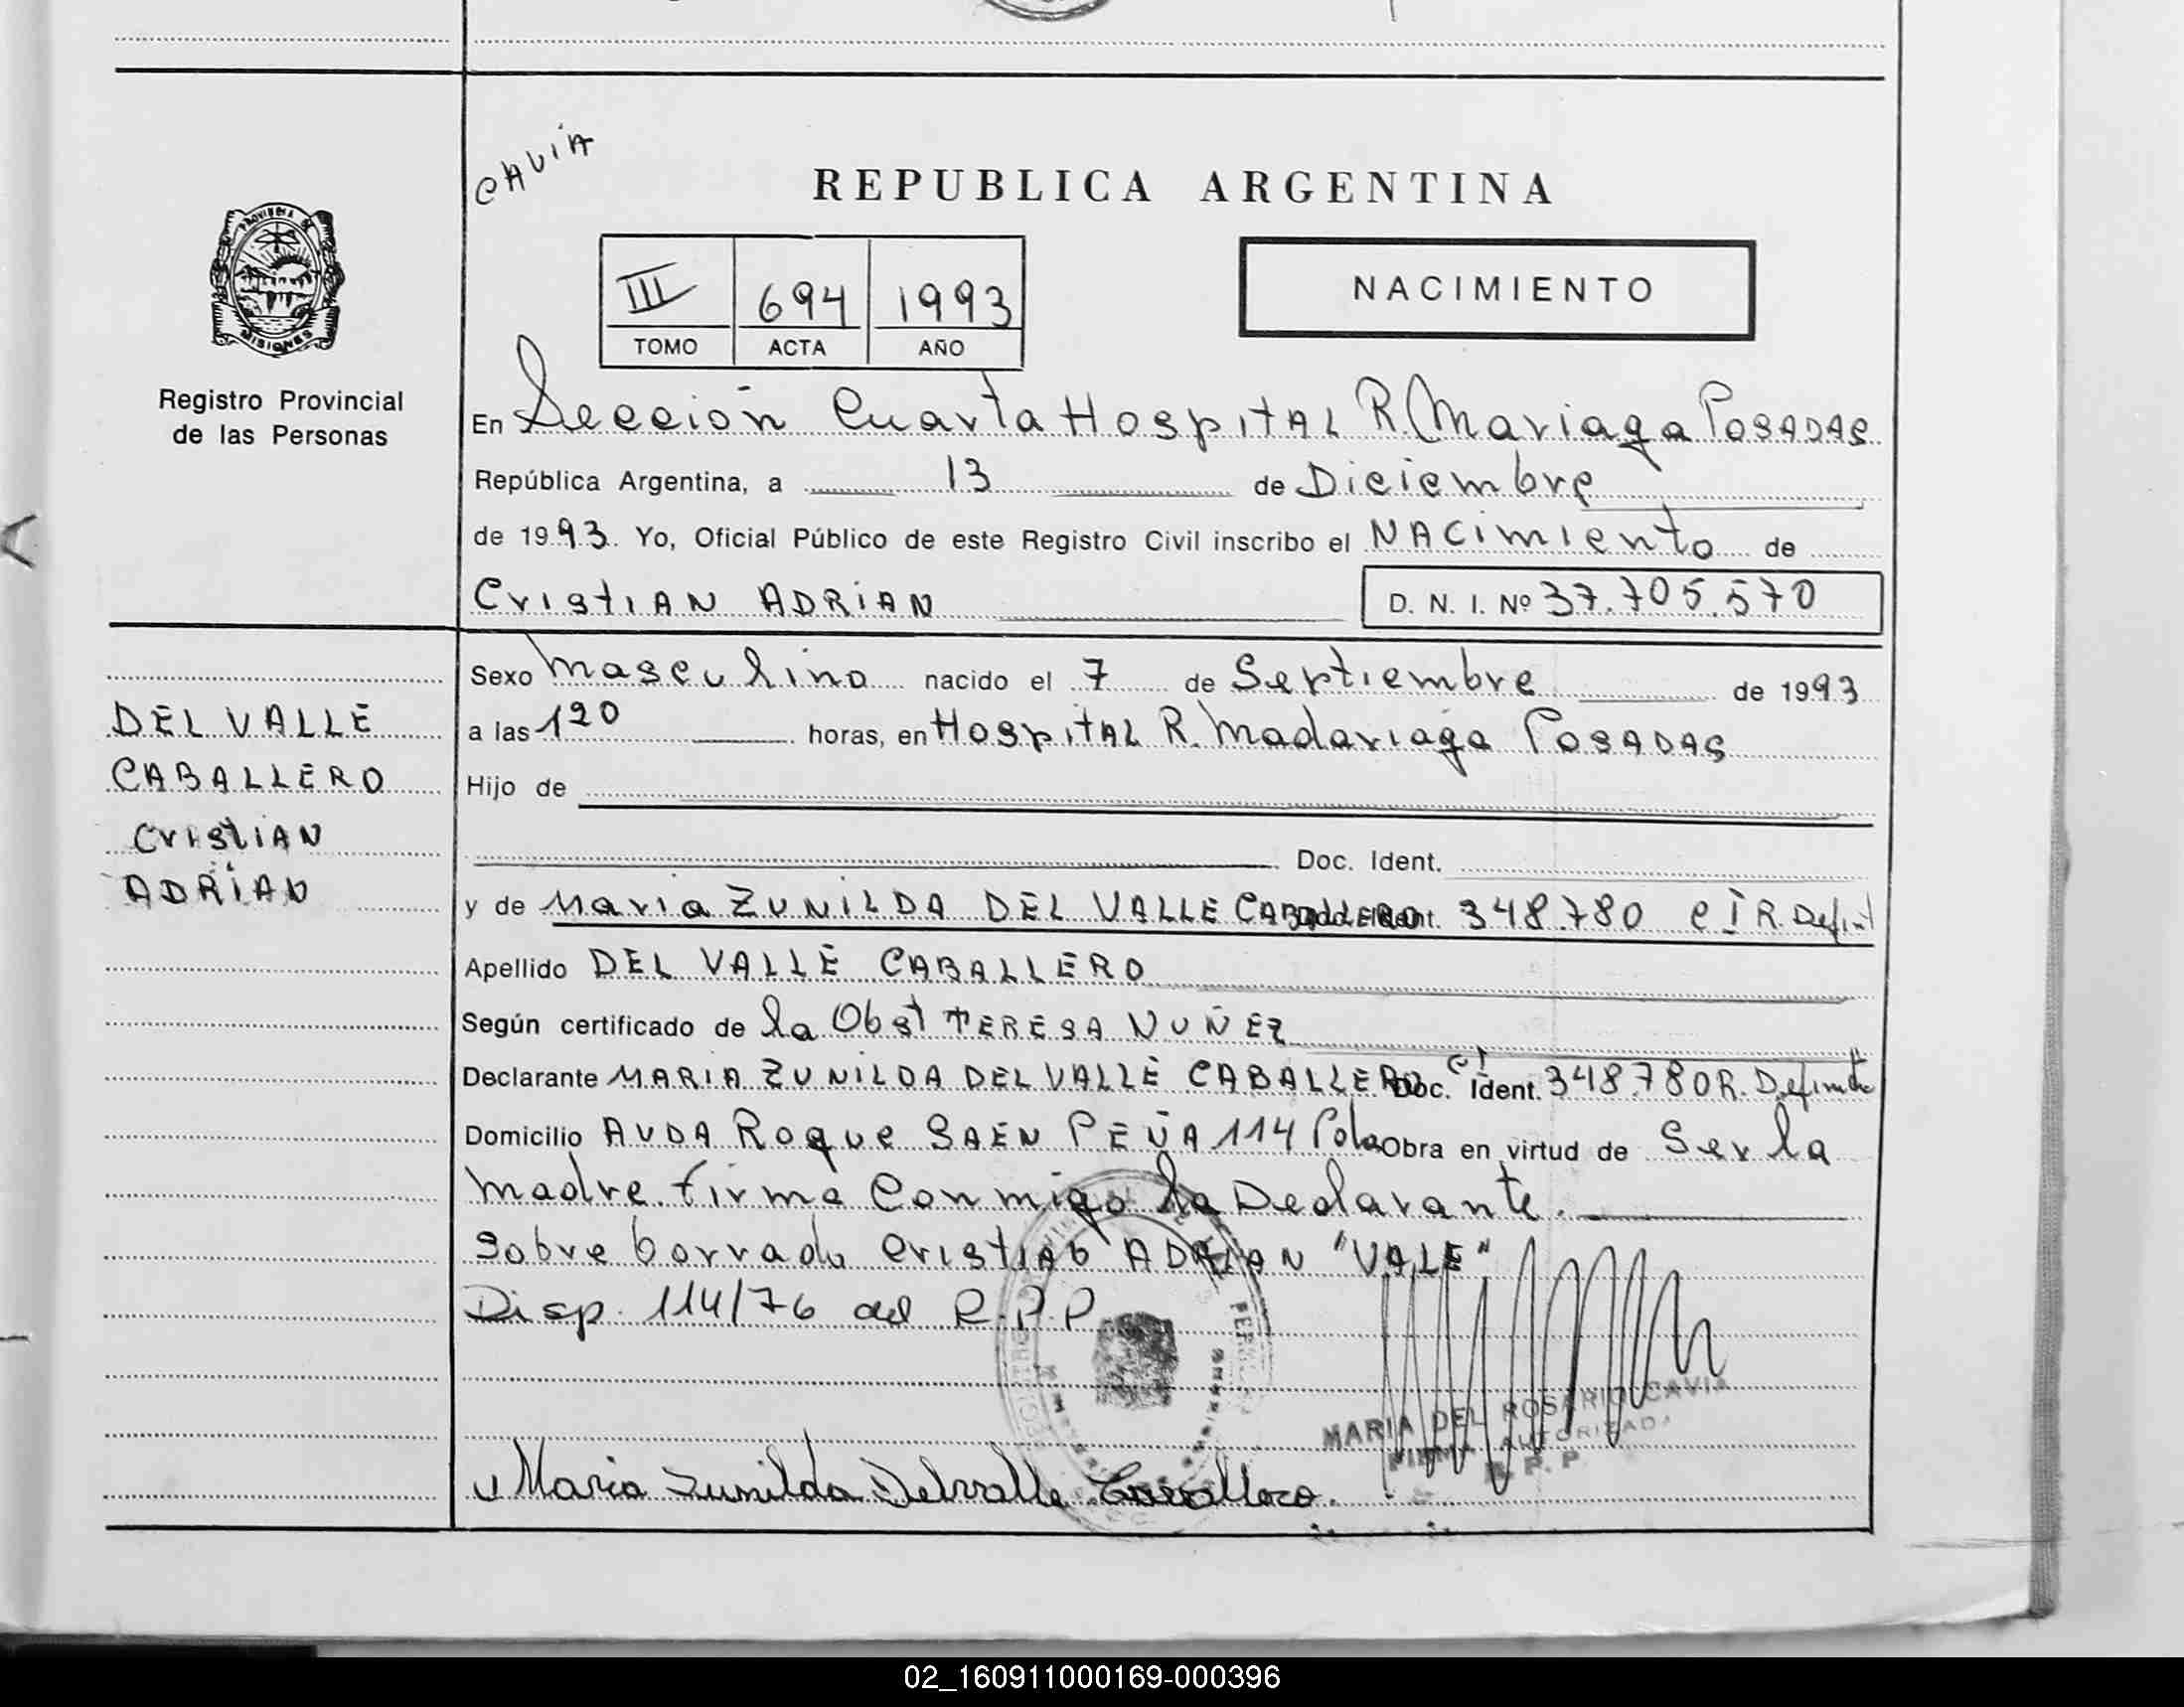 CAVIA
REPUBLICA ARGENTINA
PROVINCIA DE
MISIONES
Registro Provincial
de las Personas
III 694 1993
TOMO ACTA AÑO
NACIMIENTO
En Sección Cuarta Hospital R. Mariaga POSADAS
República Argentina, a 13 de Diciembre
de 1993. Yo, Oficial Público de este Registro Civil inscribo el NACimiento de
CristIAN ADRIAN
D. N. I. Nº 37.705.570
DEL VALLE
CABALLERO
CristIAN
ADRIAN
Sexo masculino nacido el 7 de Septiembre de 1993
a las 120 horas, en HospitAL R. Madariaga POSADAS
Hijo de
Doc. Ident.
y de Maria ZUNILDA DEL VALLE CABALLERO Doc. Ident. 348.780 C I R. Defint
Apellido DEL VALLE CABALLERO
Según certificado de la Obst TERESA NUÑEZ
Declarante MARIA ZUNILDA DEL VALLE CABALLERO Doc. Ident. CI 348.780 R. Definit
Domicilio AVDA Roque SAEN PEÑA 114 Pdas Obra en virtud de Ser la
madre. firma Conmigo la Declarante.
Sobre borrado CristiAN ADRIAN "VALE"
Disp. 114/76 del R.P.P
MARIA DEL ROSARIO CAVIA
FIRMA AUTORIZADA
R. P. P.
Maria Zunilda Delvalle Caballero.
02_160911000169-000396